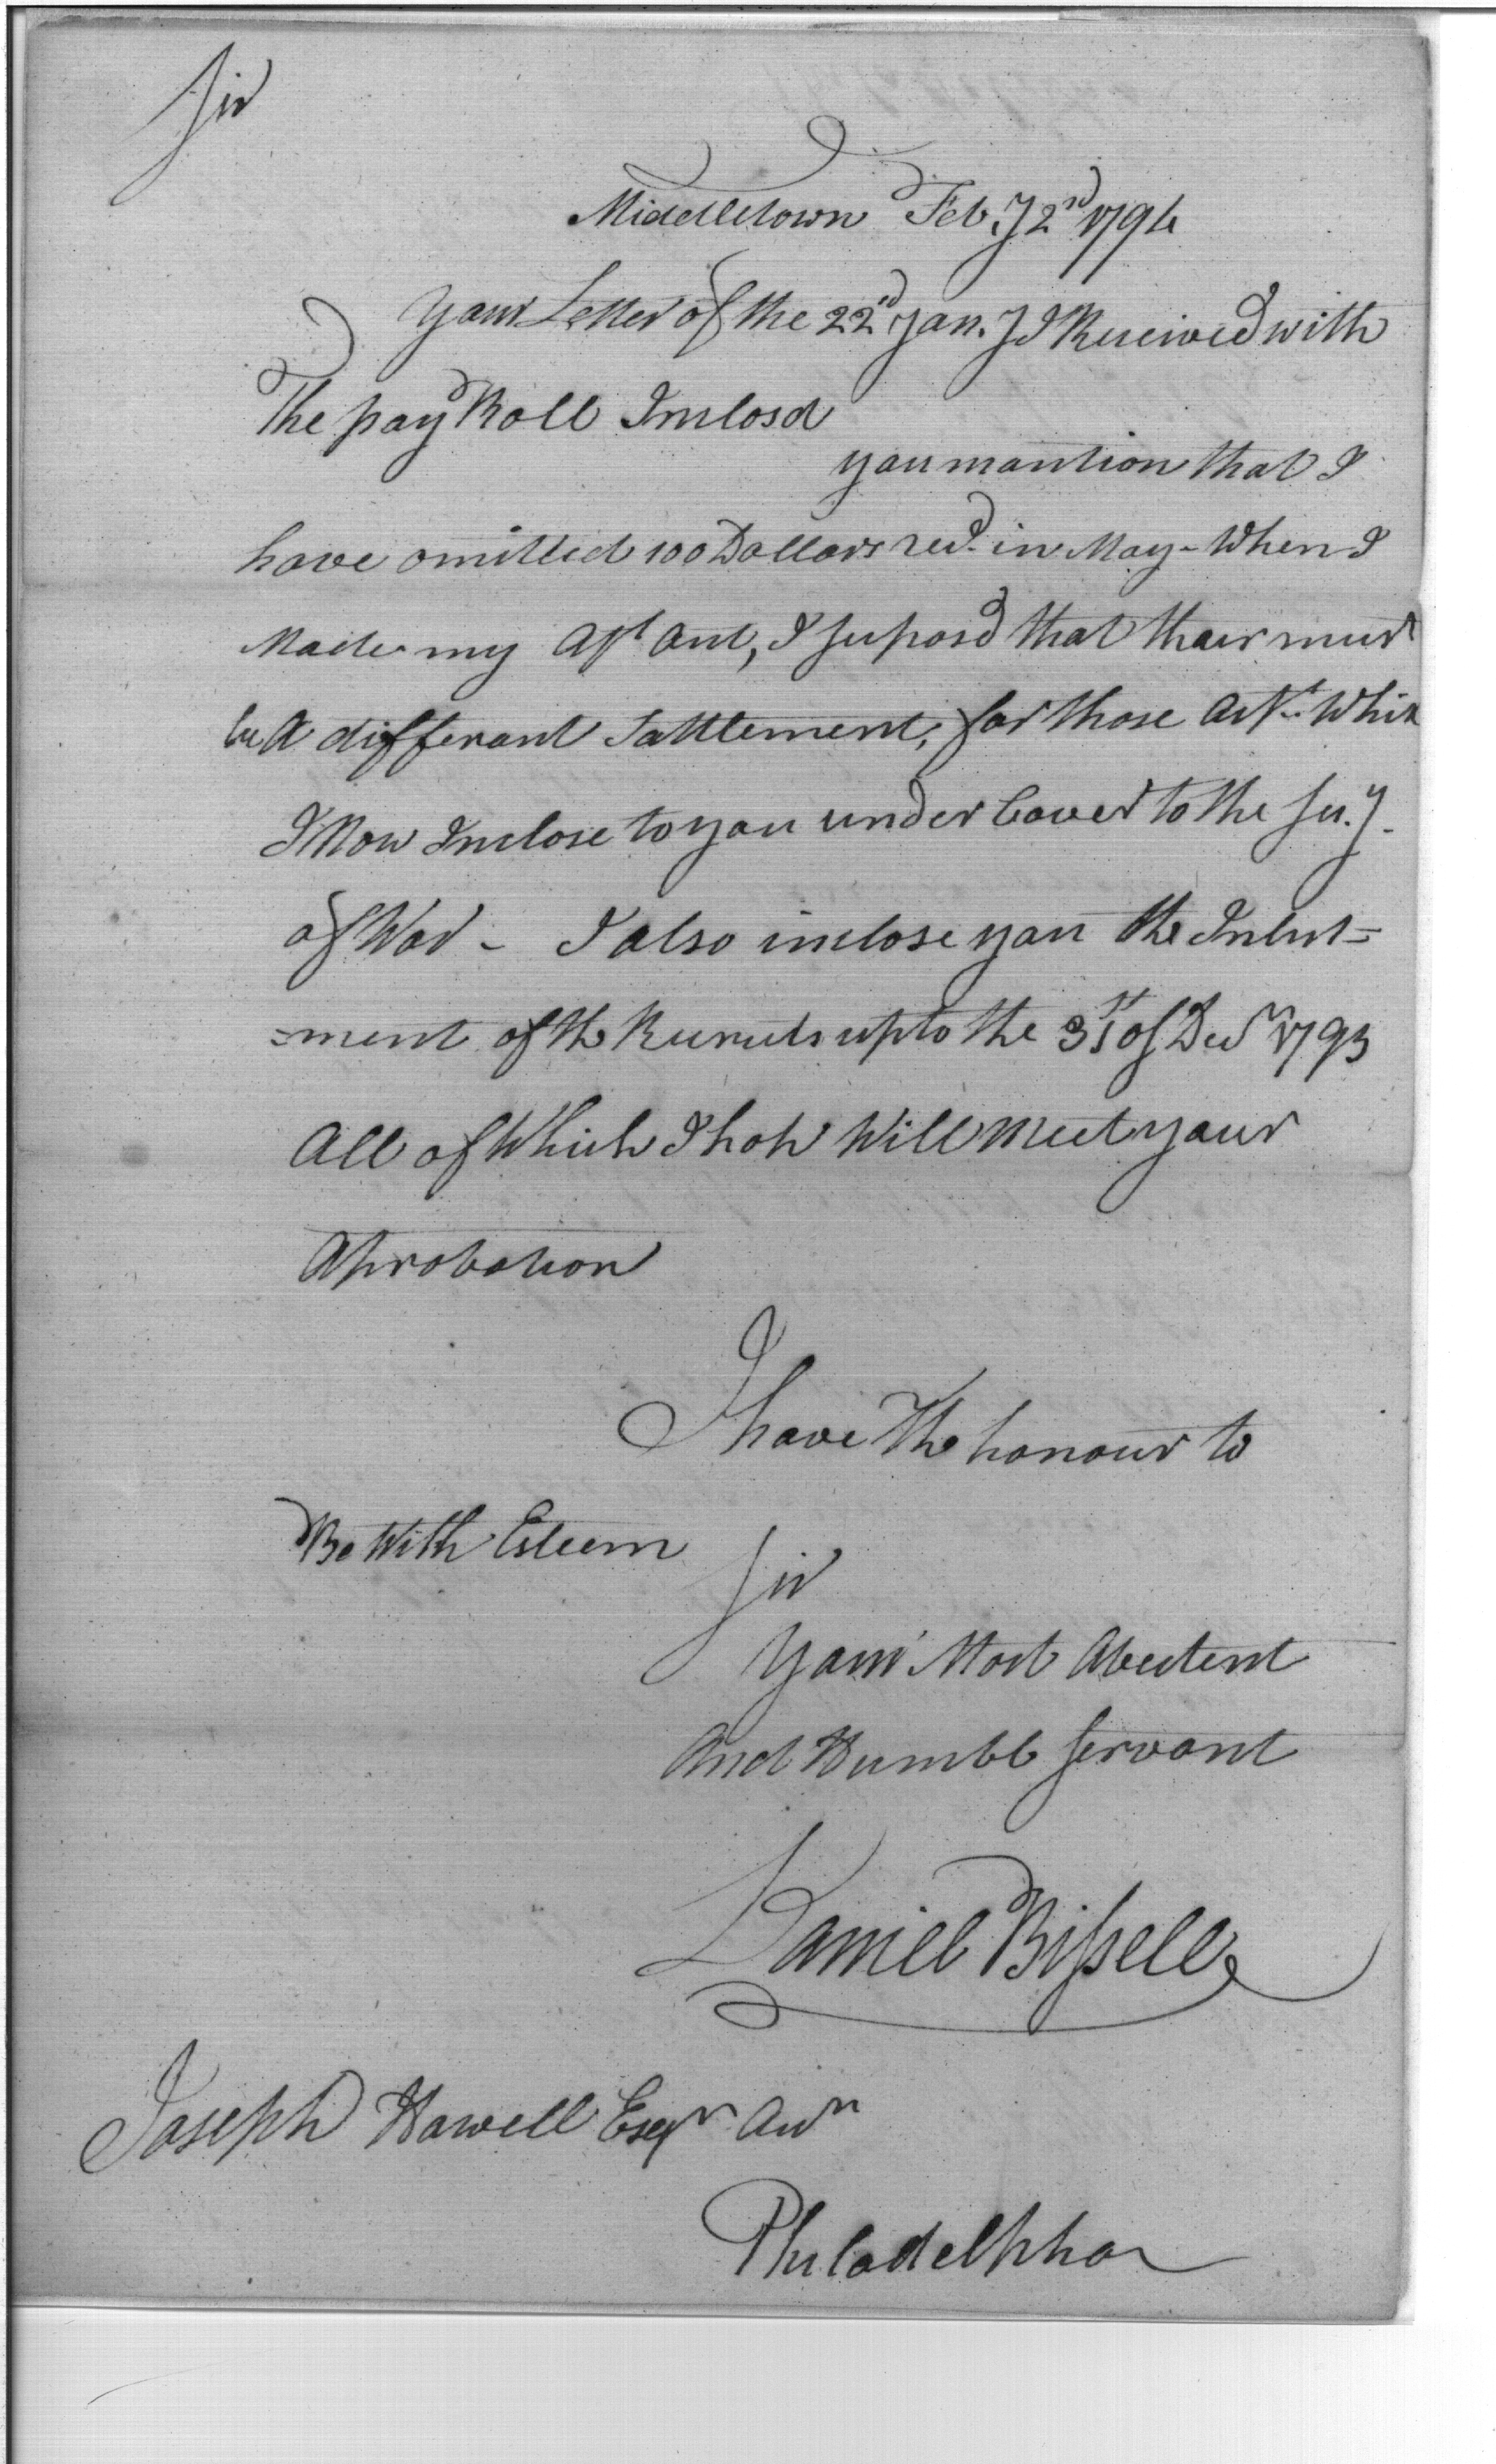 Sir
Middletown Feb.y 2nd 1794
Your Letter of the 22nd Jan.y I Received with
The pay Roll Inclosd
you mantion that I
have omitted 100 Dollars recd. in May - When I
Made my Act, I suposd that thair must
be A differant Sattlement, for those Acts. Which
I Now Inclose to you under Cover to the Sec.y
of War - I also inclose you the Inlist=
=ment of the Recruits up to the 31st of Decr 1793
All of Which I hop Will Meet your
Aprobation
I have The honour to
Be With Esteem
Sir
Your Most Abedient
And Humble Servant
Daniel Bissell
Joseph Howell Esqr
Philadelphia